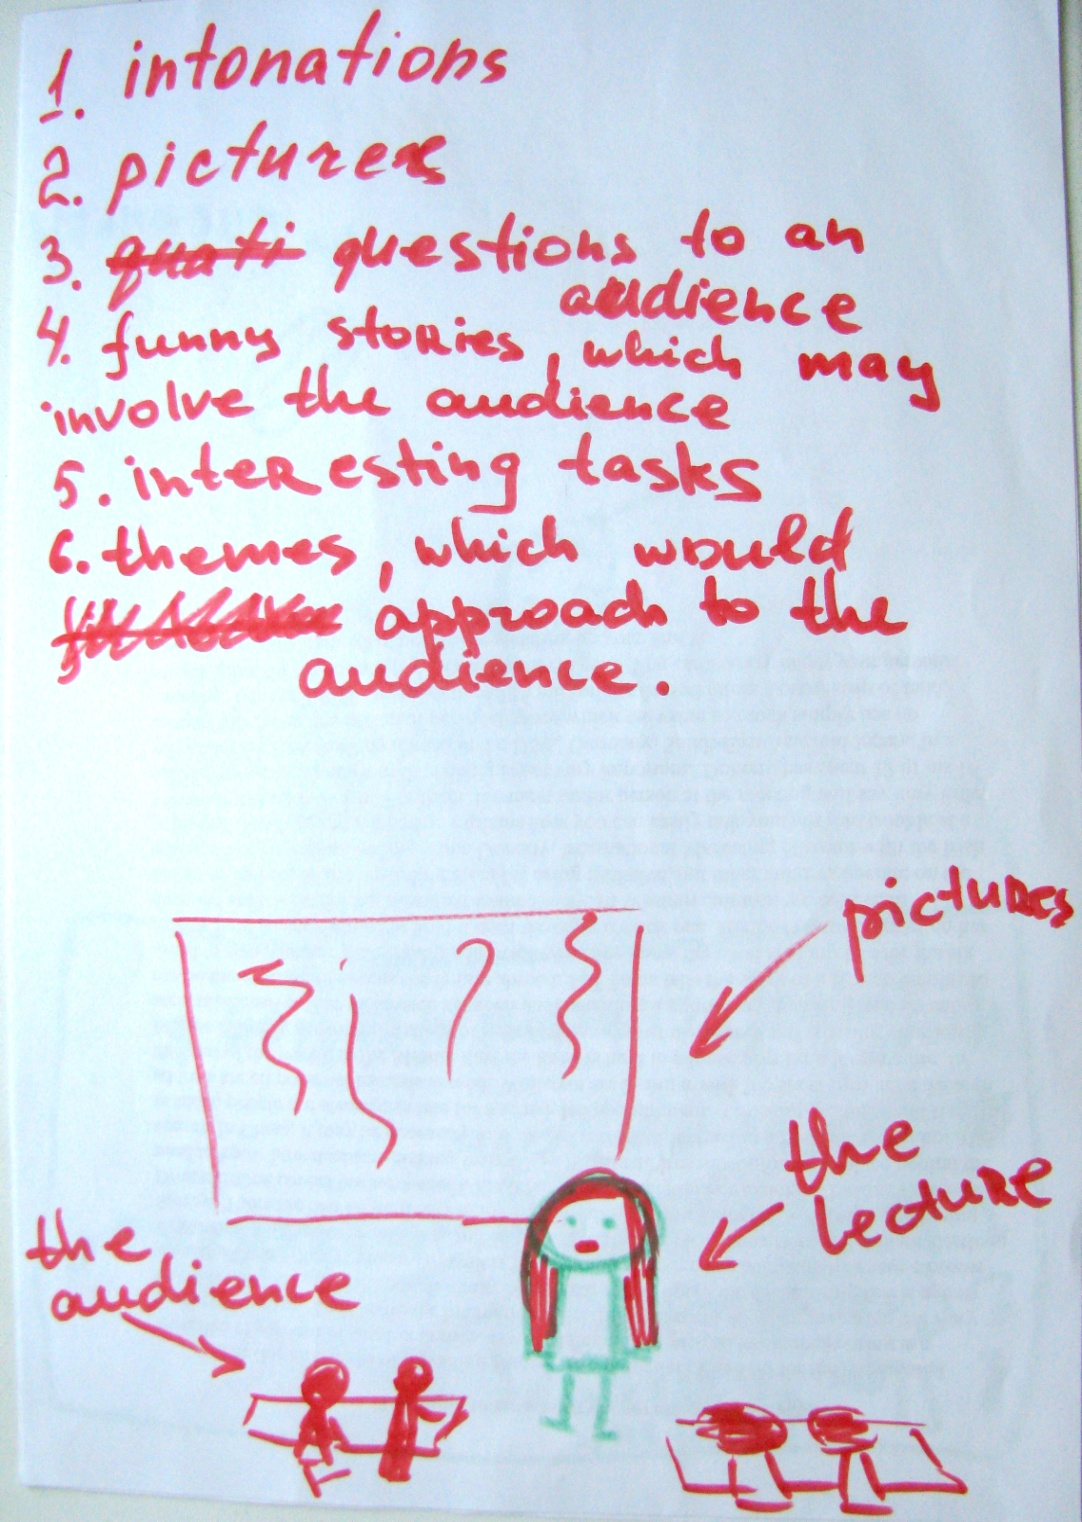 1. intonations
2. pictures
3. quati questions to an
audience
4. funny stories, which may
involve the audience
5. interesting tasks
6. themes, which would
approach to the
audience.
pictures
the
lecture
the
audience